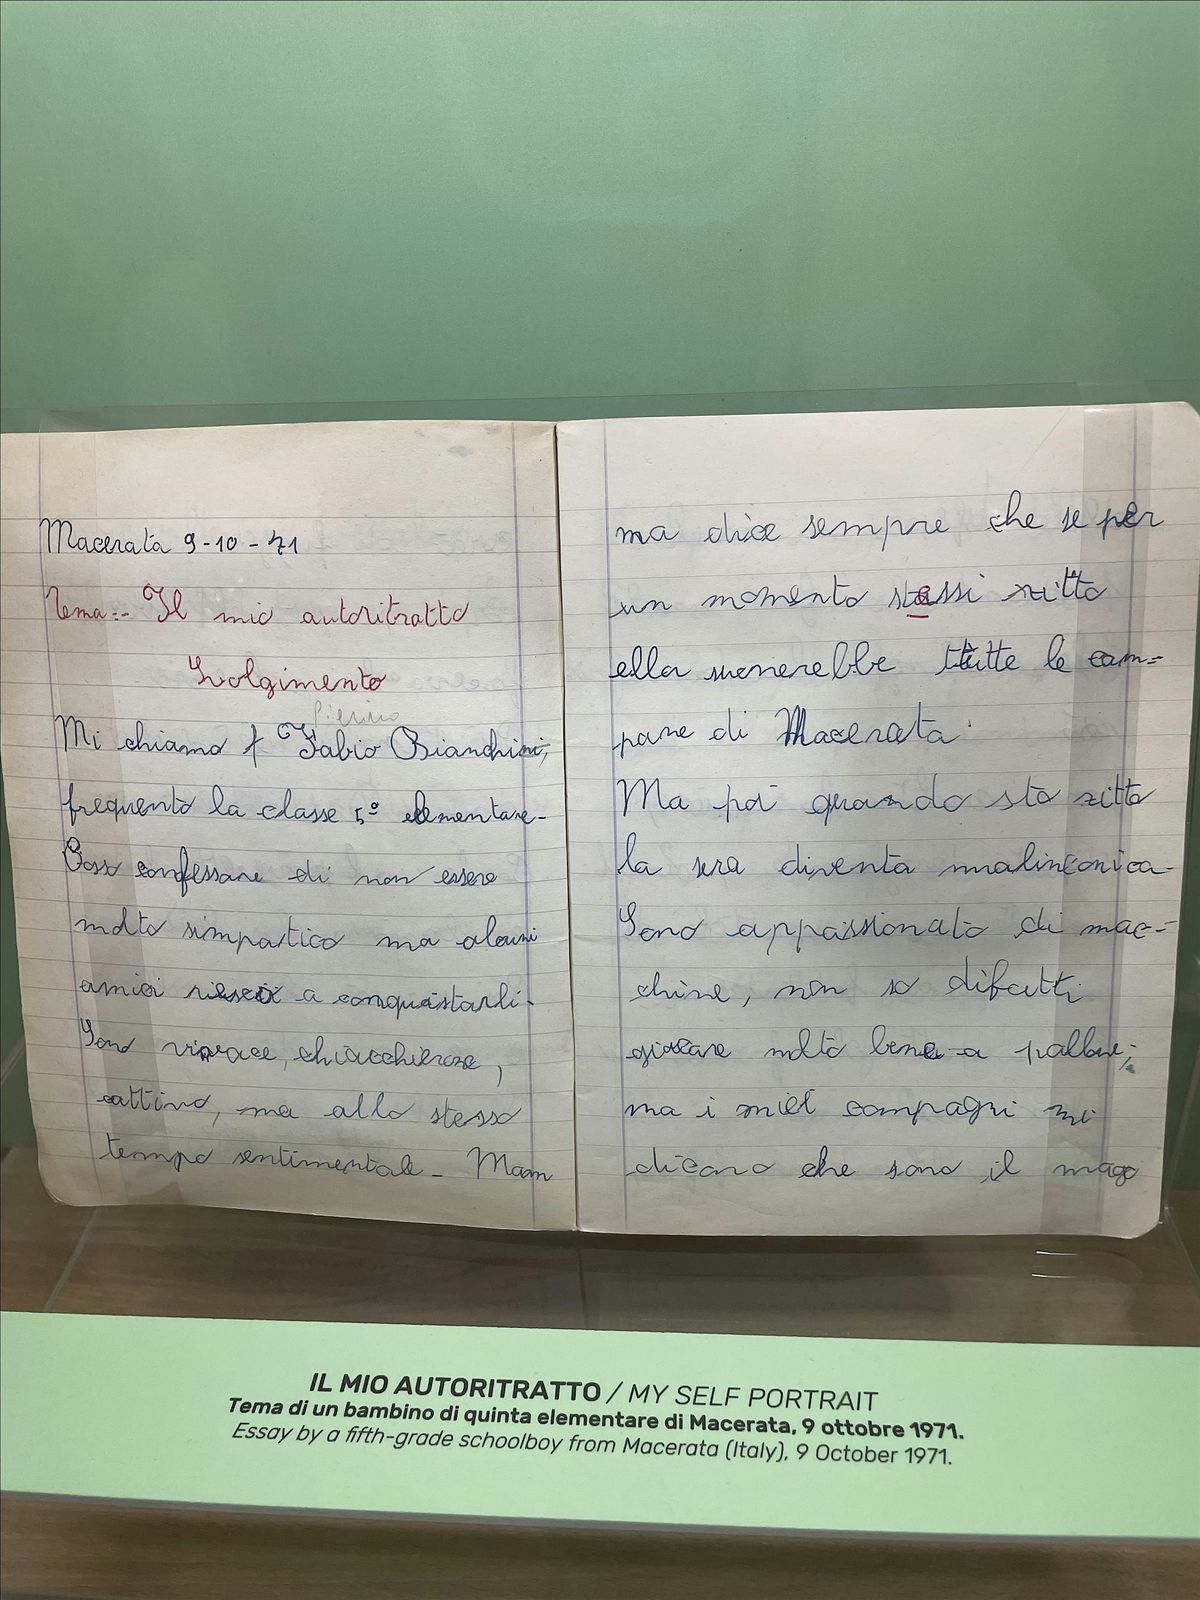 Macerata 9-10-71
Tema:- Il mio autoritratto
Svolgimento
Pierino
Mi chiamo f Fabio Bianchini,
frequento la classe 5º elementare-
Poss confessare di non essere
molto simpatico ma alcuni
amici riesco a conquistarli-
Sono vivace, chiacchierone,
cattivo, ma allo stesso
tempo sentimentale- Mam
ma dice sempre che se per
un momento stessi zitto
ella suonerebbe tutte le cam=
pane di Macerata
Ma poi quando sto zitto
la sera diventa malinconica-
Sono appassionato di mac=
chine, non so difatti
giocare molto bene a pallone;
ma i miei compagni mi
dicono che sono il mago
IL MIO AUTORITRATTO / MY SELF PORTRAIT
Tema di un bambino di quinta elementare di Macerata, 9 ottobre 1971.
Essay by a fifth-grade schoolboy from Macerata (Italy), 9 October 1971.